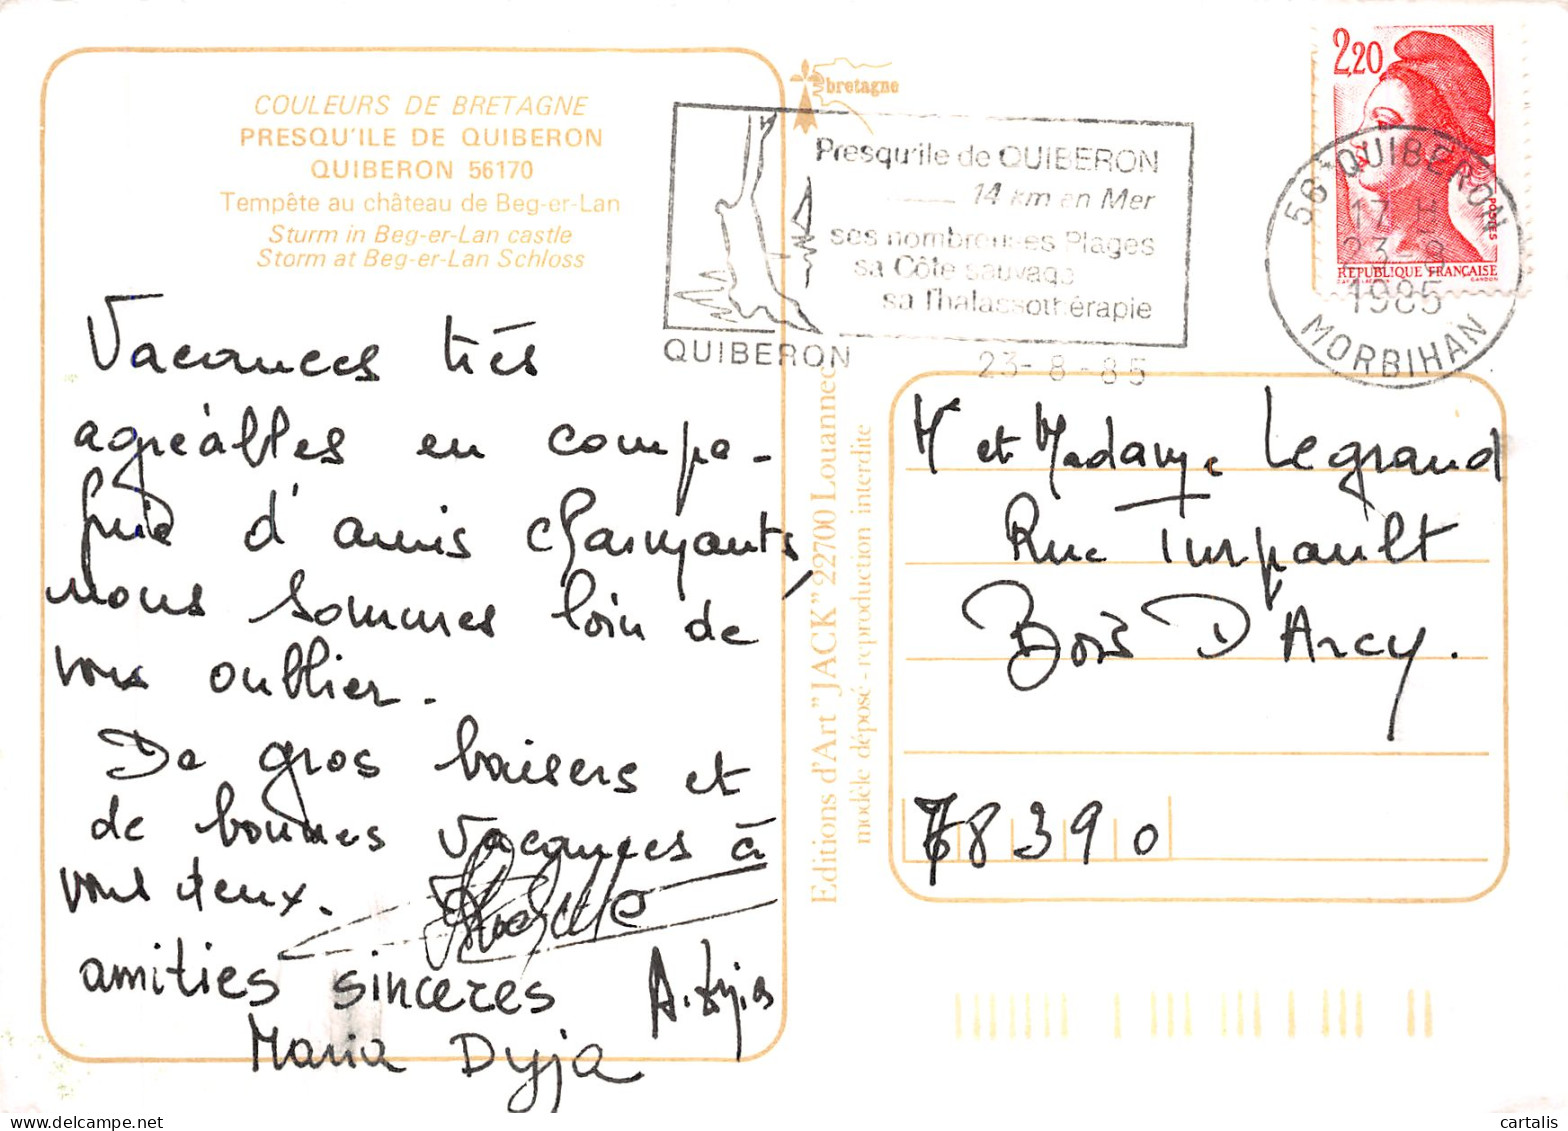 COULEURS DE BRETAGNE
PRESQU'ILE DE QUIBERON
QUIBERON 56170
Tempête au château de Beg-er-Lan
Sturm in Beg-er-Lan castle
Storm at Beg-er-Lan Schloss
Vacances très
agréables en compa-
gnie d'amis charmants,
nous sommes loin de
vous oublier.
De gros baisers et
de bonnes vacances à
vous deux.
amitiés sincères
Maria Dyja
bretagne
Presqu'ile de QUIBERON
14 km en Mer
ses nombreuses Plages
sa Côte sauvage
sa Thalassothérapie
QUIBERON
23-8-85
2,20
POSTES
RÉPUBLIQUE FRANÇAISE
GANDON
56 QUIBERON
17 H
23-8
1985
MORBIHAN
Editions d'Art "JACK" 22700 Louannec
modèle déposé - reproduction interdite
M et Madame Legrand
Rue Turpault
Bois D'Arcy.
78390
cartalis